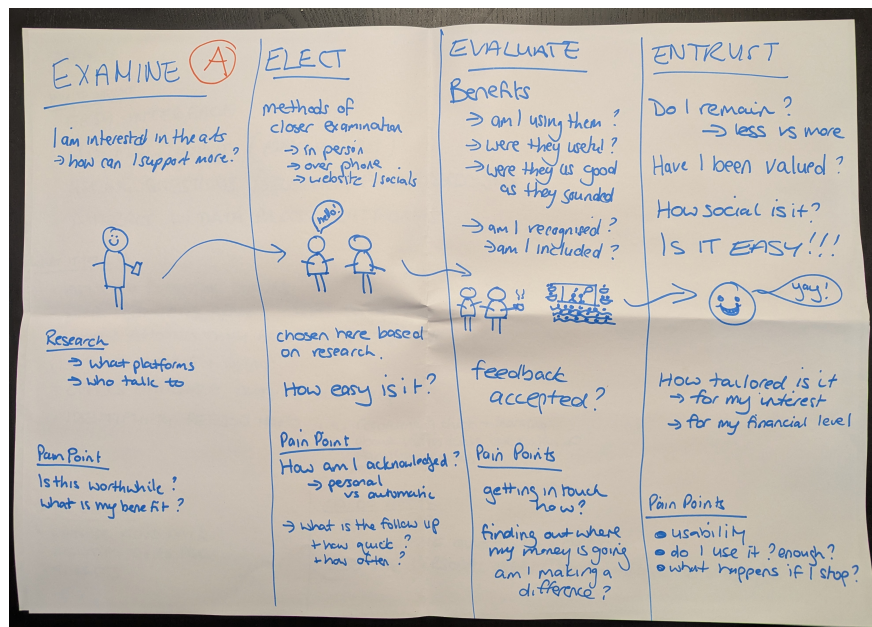 EXAMINE
A
I am interested in the arts
→ how can I support more?
Research
→ what platforms
→ who talk to
Pain Point
Is this worthwhile?
what is my benefit?
ELECT
methods of
closer examination
→ in person
→ over phone
→ website / socials
hello!
chosen here based
on research.
How easy is it?
Pain Point
How am I acknowledged?
→ personal
vs automatic
→ what is the follow up
+ how quick?
+ how often?
EVALUATE
Benefits
→ am I using them?
→ were they useful?
→ were they as good
as they sounded
→ am I recognised?
→ am I included?
feedback
accepted?
Pain Points
getting in touch
how?
finding out where
my money is going
am I making a
difference?
ENTRUST
Do I remain?
→ less vs more
Have I been valued?
How social is it?
IS IT EASY!!!
yay!
How tailored is it
→ for my interest
→ for my financial level
Pain Points
• usability
• do I use it? enough?
• what happens if I stop?